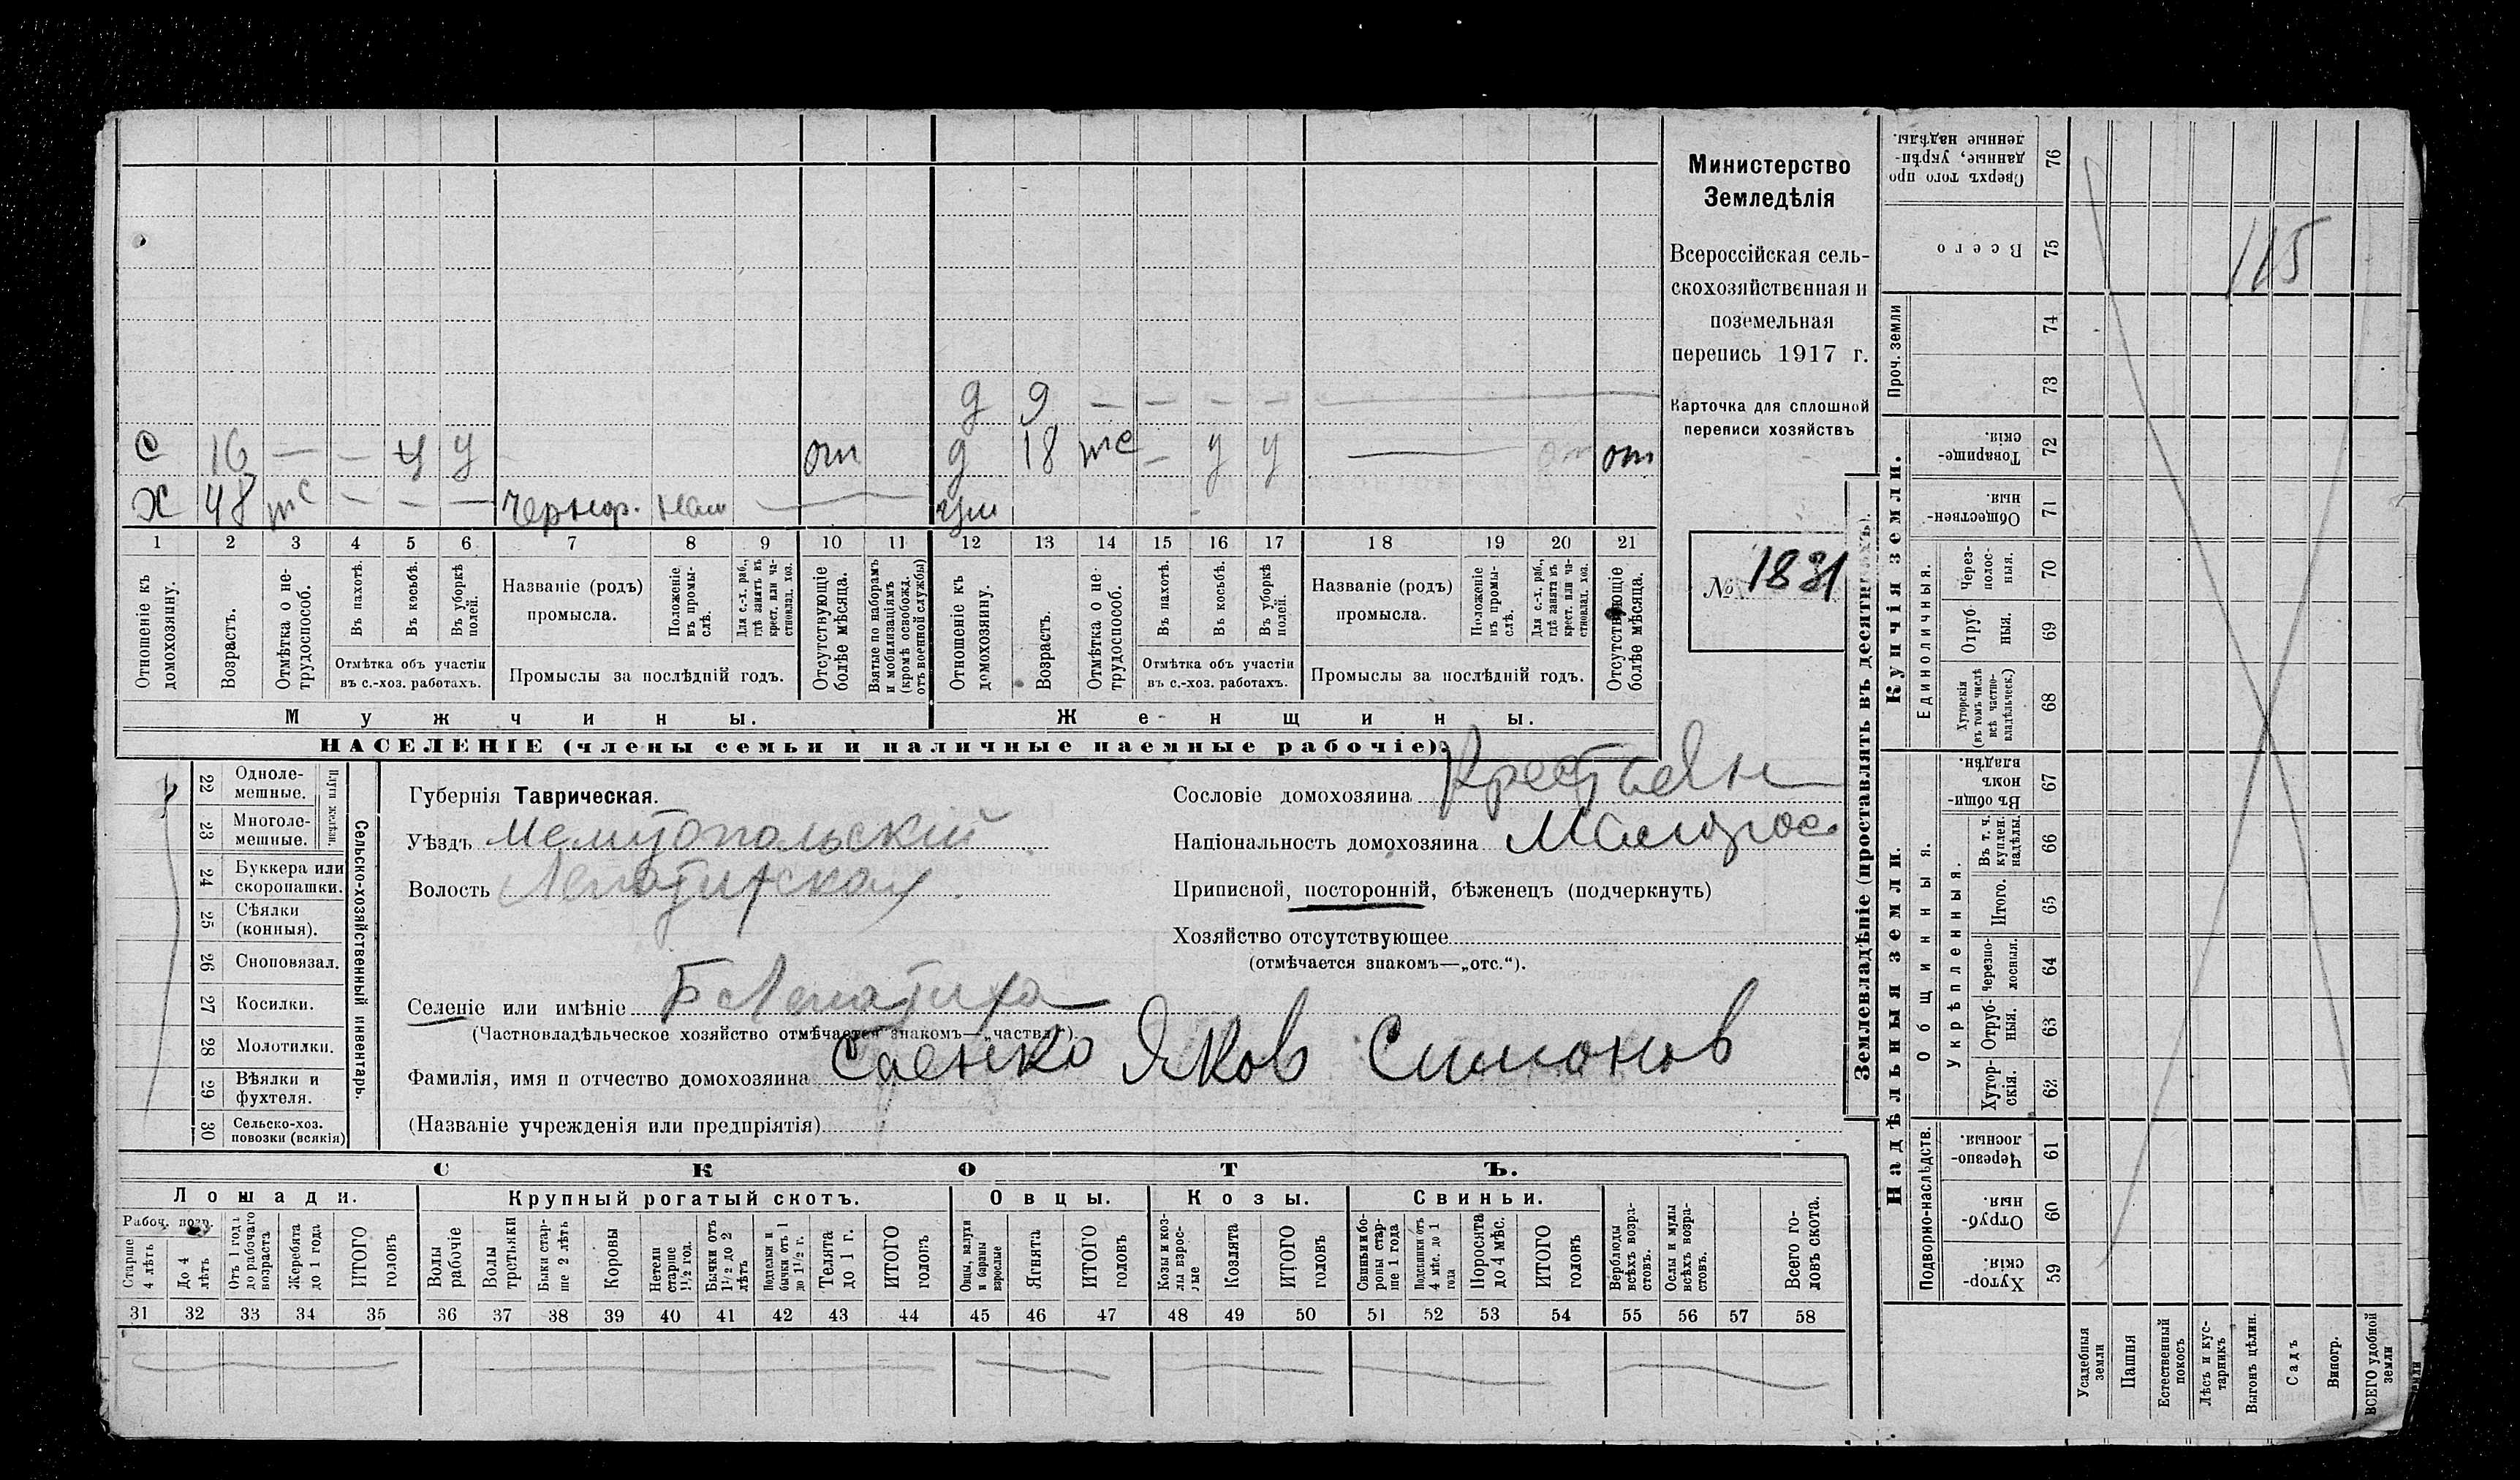 Министерство
Земледѣлія
Всероссійская сель-
скохозяйственная и
поземельная
перепись 1917 г.
Карточка для сплошной
переписи хозяйствъ
№ 1831
д 9 — — — —
С 16 — — у у от д 18 — у у — от
Х 48 — — — нам —
1 2 3 4 5 6 7 8 9 10 11 12 13 14 15 16 17 18 19 20 21
Отношеніе къ домохозяину.
Возрастъ.
Отмѣтка о не-трудоспособ.
Въ пахотѣ.
Въ косьбѣ.
Въ уборкѣ полей.
Отмѣтка объ участіи
въ с.-хоз. работахъ.
Названіе (родъ)
промысла.
Положеніе въ промы-слѣ.
Для с.-х. раб., гдѣ занятъ въ крест. или ча-стновлад. хоз.
Промыслы за послѣдній годъ.
Отсутствующіе болѣе мѣсяца.
Взятые по наборамъ и мобилизаціямъ (кромѣ освобожд. отъ военной службы)
Отношеніе къ домохозяину.
Возрастъ.
Отмѣтка о не-трудоспособ.
Въ пахотѣ.
Въ косьбѣ.
Въ уборкѣ полей.
Отмѣтка объ участіи
въ с.-хоз. работахъ.
Названіе (родъ)
промысла.
Положеніе въ промы-слѣ.
Для с.-х. раб., гдѣ занятъ въ крест. или ча-стновлад. хоз.
Промыслы за послѣдній годъ.
Отсутствующіе болѣе мѣсяца.
Мужчины. Женщины.
НАСЕЛЕНІЕ (члены семьи и наличные наемные рабочіе).
Сельско-хозяйственный инвентарь.
Плуги желѣзн.
22 Одноле-мешные.
23 Многоле-мешные.
24 Буккера или скоропашки.
25 Сѣялки (конныя).
26 Сноповязал.
27 Косилки.
28 Молотилки.
29 Вѣялки и фухтеля.
30 Сельско-хоз. повозки (всякія)
Губернія Таврическая.
Уѣздъ Мелитопольскій
Волость Лепатихская
Селеніе или имѣніе Б Лепатиха
(Частновладѣльческое хозяйство отмѣчается знакомъ—„частвл“)
Фамилія, имя и отчество домохозяина Саенко Яков Симонов
(Названіе учрежденія или предпріятія)
Сословіе домохозяина Крестьян
Національность домохозяина Малорос
Приписной, посторонній, бѣженецъ (подчеркнуть)
Хозяйство отсутствующее
(отмѣчается знакомъ—„отс.“).
СКОТЪ.
Лошади. Крупный рогатый скотъ. Овцы. Козы. Свиньи.
Рабоч. возр.
Старше 4 лѣтъ
До 4 лѣтъ
Отъ 1 года до рабочаго возраста
Жеребята до 1 года
ИТОГО головъ
Волы рабочіе
Волы третьяки
Быки стар-ше 2 лѣтъ
Коровы
Нетели старше 1½ год.
Бычки отъ 1½ до 2 лѣтъ
Подтелки и бычки отъ 1 до 1½ г.
Телята до 1 г.
ИТОГО головъ
Овцы, валухи и бараны взрослые
Ягнята
ИТОГО головъ
Козы и коз-лы взрос-лые
Козлята
ИТОГО головъ
Свиньи бо-ровы стар-ше 1 года
Подсвинки отъ 4 мѣс. до 1 года
Поросята до 4 мѣс.
ИТОГО головъ
Верблюды всѣхъ возра-стовъ.
Ослы и мулы всѣхъ возра-стовъ.
Всего го-ловъ скота.
31 32 33 34 35 36 37 38 39 40 41 42 43 44 45 46 47 48 49 50 51 52 53 54 55 56 57 58
Землевладѣніе (проставлять въ десятинахъ).
Купчія земли.
Надѣльныя земли.
Сверхъ того про данные, укрѣп-ленные надѣлы. 76
Всего 75
115
Проч. земли
74
73
Товарище-скія. 72
Обществен-ныя. 71
Единоличныя.
Через-полос-ныя. 70
Отруб ныя. 69
Хуторскія (въ томъ числѣ всѣ частно-владѣльческ.) 68
Общинныя.
Въ общи-номъ владѣн. 67
Укрѣпленныя.
Въ т. ч. куплен. надѣлы. 66
Итого. 65
черезпо-лосныя. 64
Отруб-ныя. 63
Хутор-скія. 62
Подворно-наслѣдств.
Черезпо-лосныя. 61
Отруб-ныя. 60
Хутор-скія. 59
Усадебныя земли
Пашня
Естественный покосъ
Лѣсъ и кус-тарникъ
Выгонъ цѣлин.
Садъ
Виногр.
ВСЕГО удобной земли